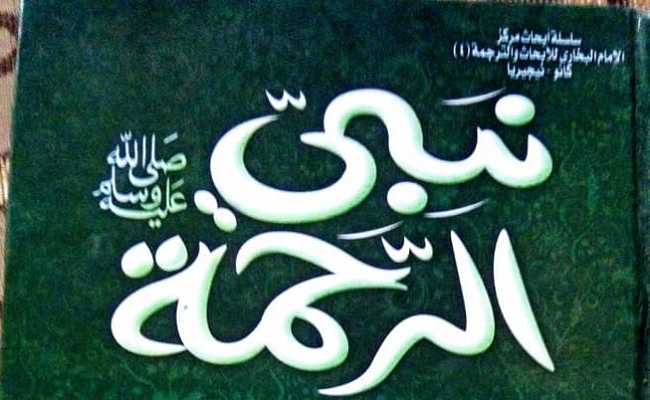 سلسلة أبحاث مركز
الامام البخاري للأبحاث والترجمة (١)
كانو - نيجيريا
نبيّ
صلى الله
عليه وسلم
الرّحمة